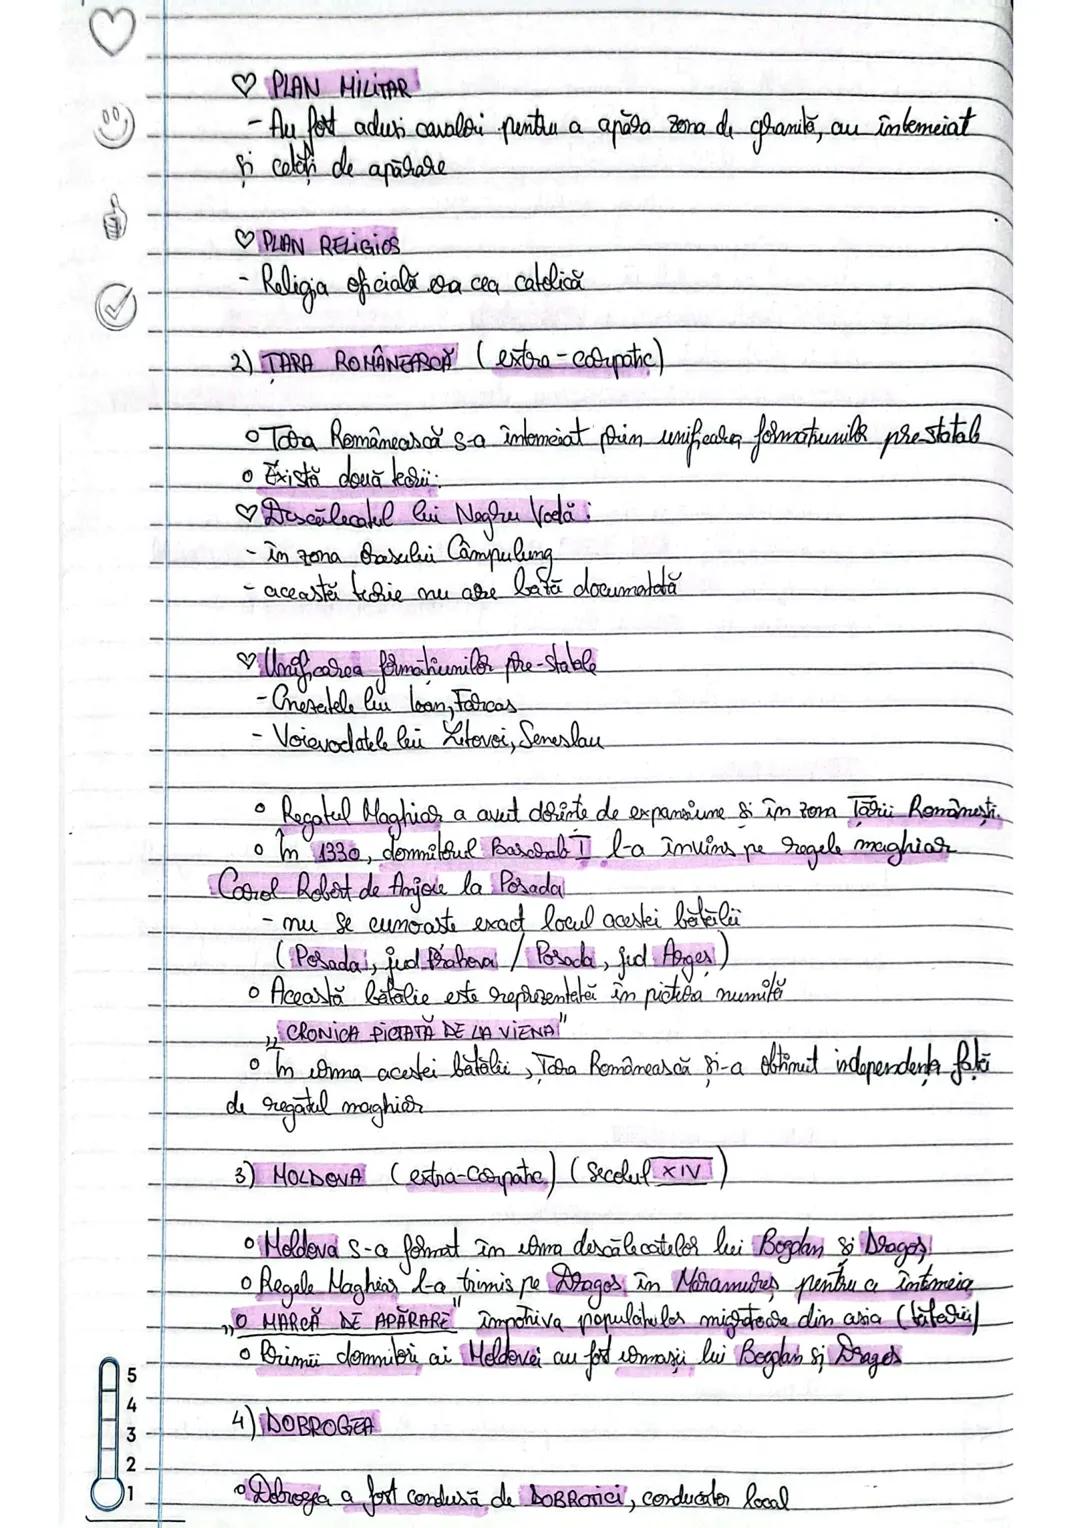 ♡ PLAN MILITAR
- Au fost aduși cavaleri pentru a apăra zona de graniță, au întemeiat
și cetăți de apărare
♡ PLAN RELIGIOS
- Religia oficială era cea catolică
2) ȚARA ROMÂNEASCĂ (extra-carpatic)
○ Țara Românească s-a întemeiat prin unificarea formațiunilor pre-statale
○ Există două teorii:
♡ Descălecatul lui Negru Vodă:
- în zona Orașului Câmpulung
- această teorie nu are bază documentată
♡ Unificarea formațiunilor pre-statale
- Cnezatele lui Ioan, Farcaș
- Voievodatele lui Litovoi, Seneslau
○ Regatul Maghiar a avut dorințe de expansiune și în zona Țării Românești.
○ În 1330, domnitorul Basarab I l-a învins pe regele maghiar
Carol Robert de Anjou la Posada
- nu se cunoaște exact locul acestei bătălii
(Posada, jud Prahova / Posada, jud Argeș)
○ Această bătălie este reprezentată în pictura numită
„CRONICA PICTATĂ DE LA VIENA"
○ În urma acestei bătălii, Țara Românească și-a obținut independența față
de regatul maghiar
3) MOLDOVA (extra-carpatic) (Secolul XIV)
○ Moldova s-a format în urma descălecatelor lui Bogdan și Dragoș
○ Regele Maghiar l-a trimis pe Dragoș în Maramureș pentru a întemeia
„O MARCĂ DE APĂRARE" împotriva populațiilor migratoare din asia (tătarii)
○ Primii domnitori ai Moldovei au fost urmașii lui Bogdan și Dragoș
4) DOBROGEA
○ Dobrogea a fost condusă de DOBROTICI, conducător local
5
4
3
2
1